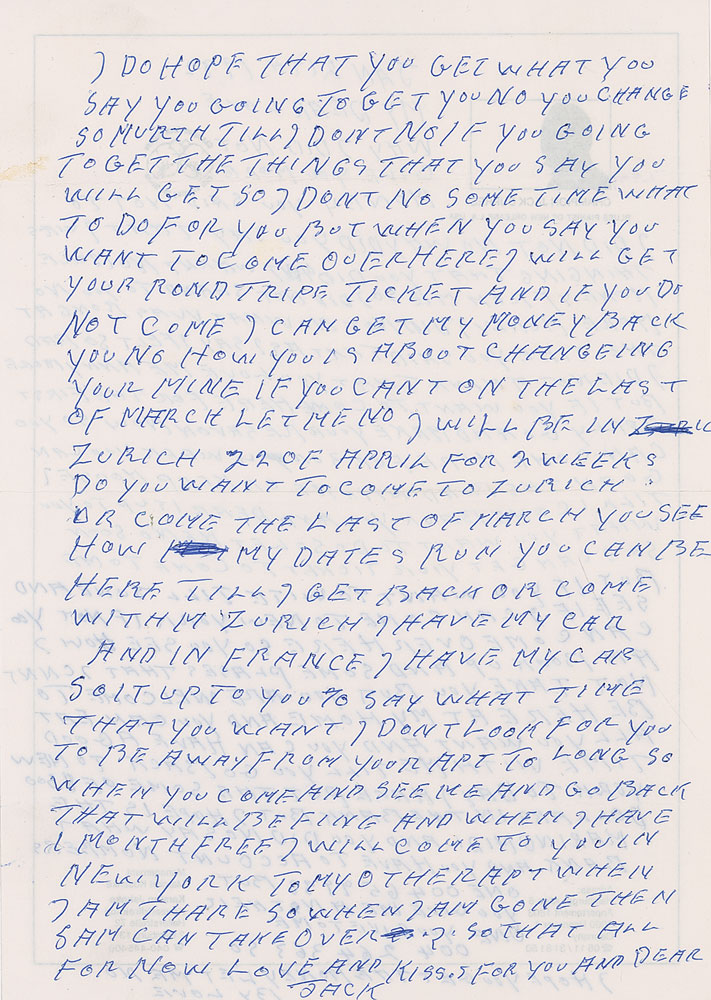 I DO HOPE THAT YOU GET WHAT YOU
SAY YOU GOING TO GET YOU NO YOU CHANGE
SO MURTH TILL I DONT NO IF YOU GOING
TO GET THE THINGS THAT YOU SAY YOU
WILL GET SO I DONT NO SOME TIME WHAT
TO DO FOR YOU BUT WHEN YOU SAY YOU
WANT TO COME OVER HERE I WILL GET
YOUR ROND TRIPE TICKET AND IF YOU DO
NOT COME I CAN GET MY MONEY BACK
YOU NO HOW YOU IS ABOUT CHANGEING
YOUR MINE IF YOU CANT ON THE LAST
OF MARCH LET ME NO I WILL BE IN
ZURICH 22 OF APRIL FOR 2 WEEKS
DO YOU WANT TO COME TO ZURICH
OR COME THE LAST OF MARCH YOU SEE
HOW MY DATES RUN YOU CAN BE
HERE TILL I GET BACK OR COME
WITH M ZURICH I HAVE MY CAR
AND IN FRANCE I HAVE MY CAR
SO IT UP TO YOU TO SAY WHAT TIME
THAT YOU WANT I DONT LOOK FOR YOU
TO BE AWAY FROM YOUR APT TO LONG SO
WHEN YOU COME AND SEE ME AND GO BACK
THAT WILL BE FINE AND WHEN I HAVE
1 MONTH FREE I WILL COME TO YOU IN
NEW YORK TO MY OTHER APT WHEN
I AM THARE SO WHEN I AM GONE THEN
SAM CAN TAKE OVER SO THAT ALL
FOR NOW LOVE AND KISSES FOR YOU AND DEAR
JACK